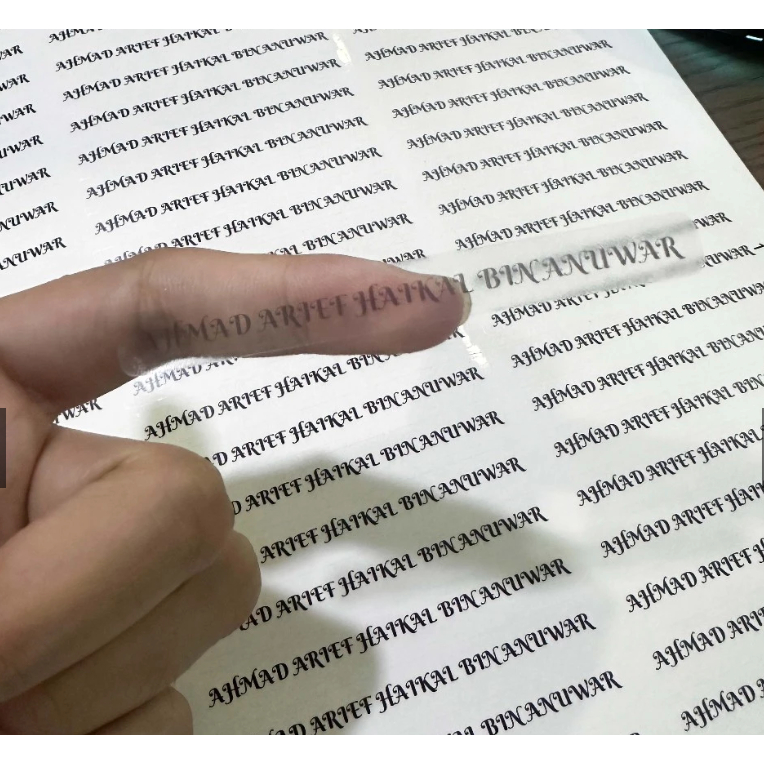 AHMAD ARIEF HAIKAL
AHMAD ARIEF HAIKAL BIN ANUWAR
AHMAD ARIEF HAIKAL BIN ANUWAR
AHMAD ARIEF HAIKAL BIN ANUWAR
AHMAD ARIEF HAIKAL BIN ANUWAR
AHMAD ARIEF HAIKAL BIN ANUWAR
AHMAD ARIEF HAIKAL BIN ANUWAR
HAIKAL BIN ANUWAR
AHMAD ARIEF HAIKAL BIN ANUWAR
AHMAD ARIEF HAIKAL BIN ANUWAR
ARIEF HAIKAL BIN ANUWAR
ARIEF HAIKAL BIN ANUWAR
ARIEF HAIKAL BIN ANUWAR
ARIEF HAIKAL BIN ANUWAR
ARIEF HAIKAL BIN ANUWAR
AHMAD ARIEF HAIKAL BIN ANUWAR
ARIEF HAIKAL BIN ANUWAR
AHMAD ARIEF HAIKAL BIN ANUWAR
AHMAD ARIEF HAIKAL BIN ANUWAR
AHMAD ARIEF HAIKAL BIN ANUWAR
AHMAD ARIEF HAIKAL BIN ANUWAR
AHMAD ARIEF HAIKAL BIN ANUWAR
AHMAD ARIEF HAIKAL BIN ANUWAR
AHMAD ARIEF HAIKAL BIN ANUWAR
AHMAD ARIEF HAIKAL BIN
AHMAD ARIEF HAIKAL BIN
AHMAD ARIEF HAIKAL BIN
AHMAD ARIEF HAIKAL
AHMAD ARIEF HAIKAL
AHMAD ARIEF
AHMAD ARIEF
AHMAD
AHMAD